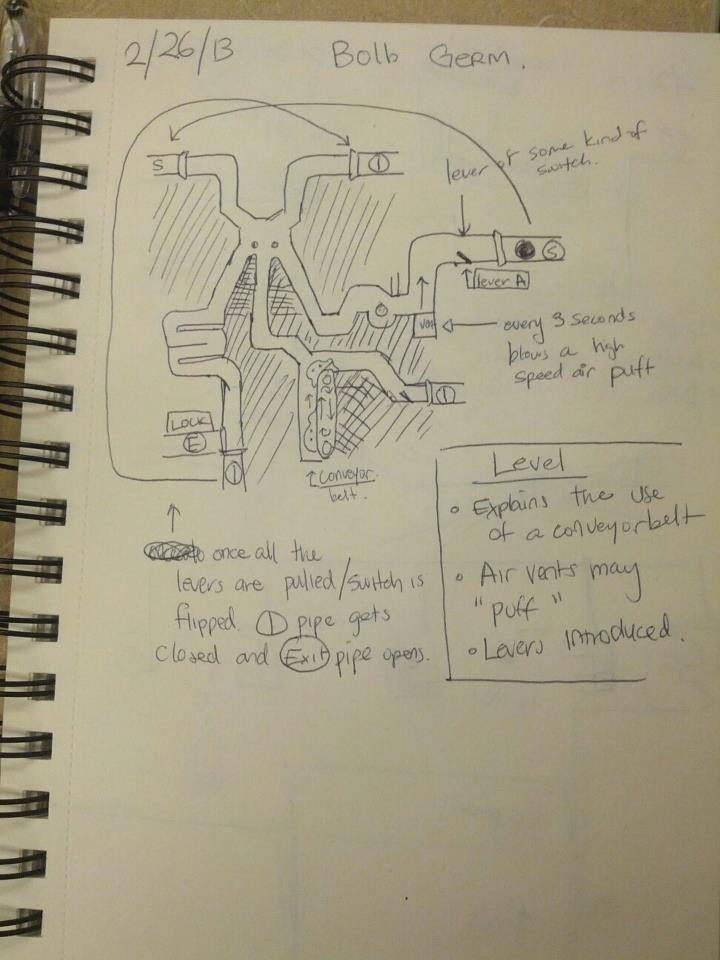 2/26/13 Bolb Germ.
S
1
lever of some kind of
switch.
S
lever A
Vent
every 3 seconds
blows a high
speed air puff
1
LOCK
E
1
Conveyor
belt.
once all the
levers are pulled/switch is
flipped. 1 pipe gets
closed and Exit pipe opens.
Level
• Explains the use
of a conveyorbelt
• Air vents may
"puff"
• Levers introduced.